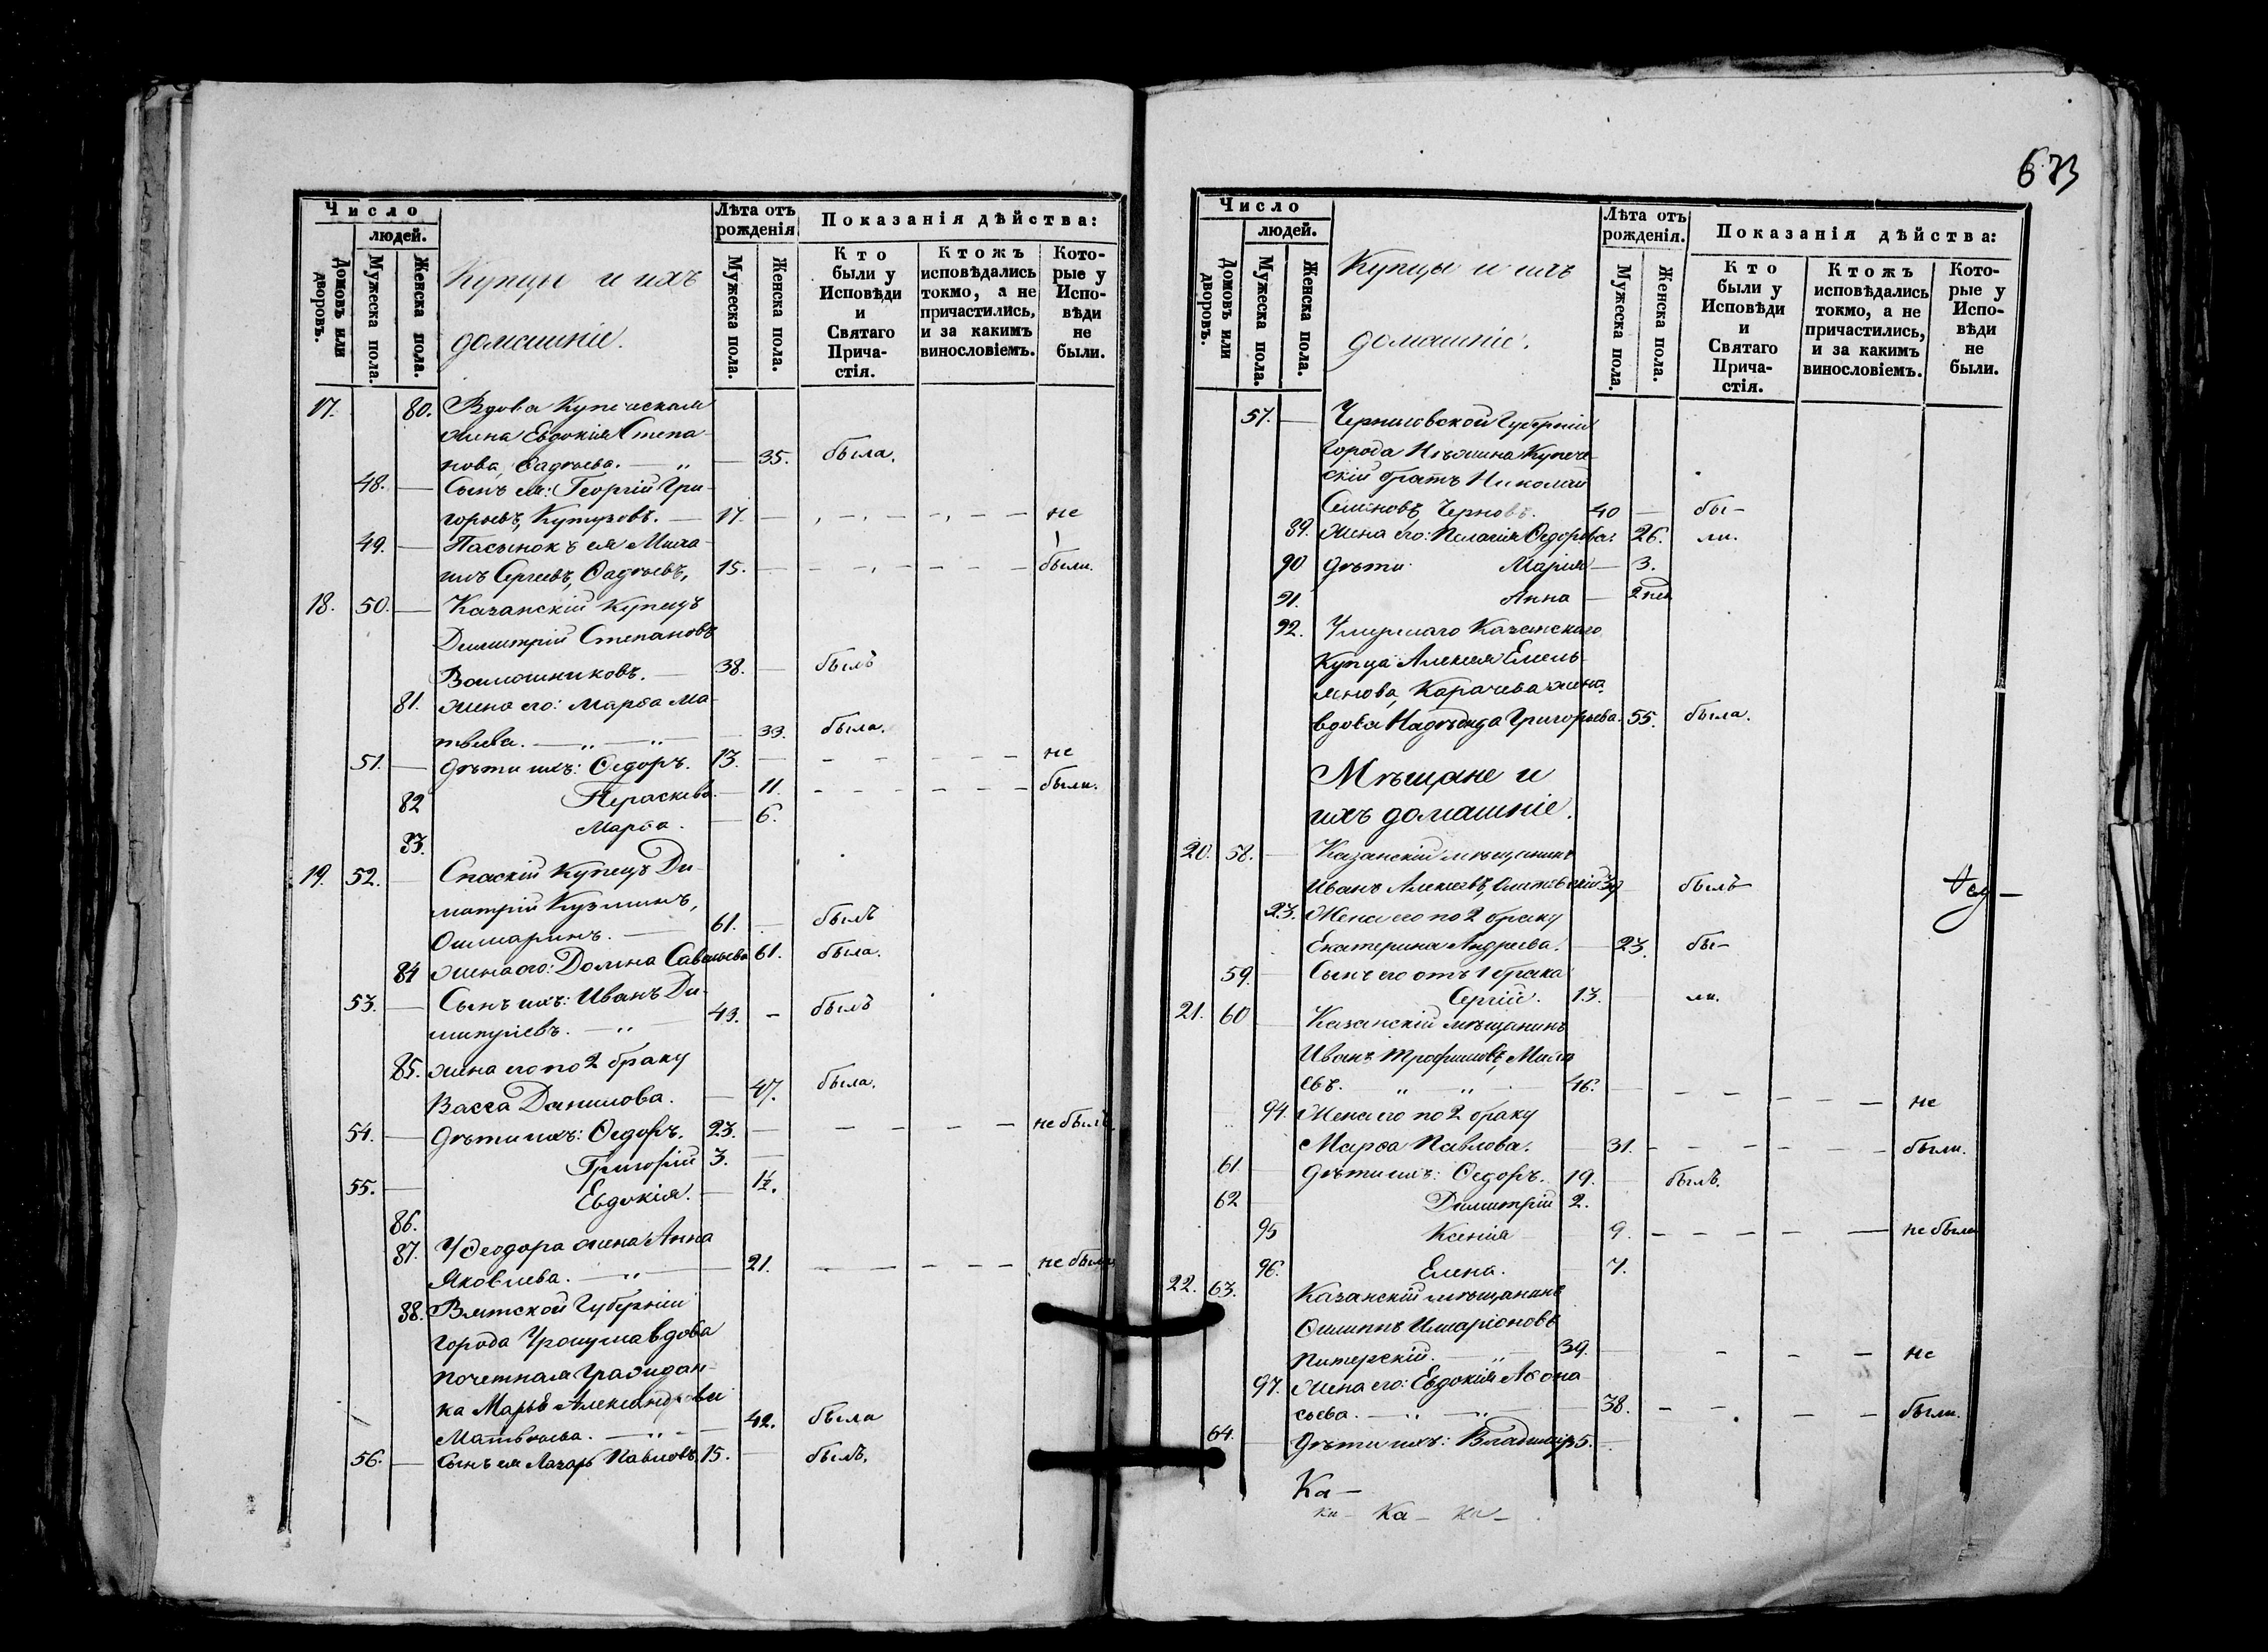 673
Число
людей.
Домовъ или дворовъ.
Мужеска пола.
Женска пола.
Купцы и ихъ
домашніе.
Лѣта отъ рожденія
Мужеска пола.
Женска пола.
Показанія дѣйства:
Кто были у Исповѣди и Святаго Причастія.
Ктожъ исповѣдались токмо, а не причастились, и за какимъ винословіемъ.
Которые у Исповѣди не были.
17. 80. Вдова Купеческая
жена Евдокія Степа-
нова, Фадѣева. — 35. была.
48. — Сынъ ея: Георгій Гри-
горьевъ, Кутузовъ. — 17. — не
49. — Пасынокъ ея Миха-
илъ Сергеевъ, Фадѣевъ, 15. — были.
18. 50. — Казанскій Купецъ
Димитрій Степановъ
38. — былъ
81. Жена его: Марѳа Ма-
твѣева. — 33. была.
51. — Дѣти ихъ: Ѳедоръ. 13. — не
82 Параскева. — 11. были.
83. Марѳа. — 6.
19. 52. — Спаскій Купецъ Ди-
митрій Кузминъ,
61. — былъ
84 Жена его: Домна Савельева 61. была.
53. — Сынъ ихъ: Иванъ Ди-
митріевъ. — 43. — былъ
85. Жена его по 2 браку
Васса Данилова. — 47. была.
54. — Дѣти ихъ: Ѳедоръ. 23. — не были
Григорій 3. —
55. — Евдокія. —
86.
87. У Ѳеодора жена Анна
Яковлева. — 21. не были
88. Вятской Губерніи
города Уржума вдова
почетная Граждан-
ка Марья Александрова
Матвѣева. — 42. была
56. — Сынъ ея Лазарь Павловъ. 15. — былъ.
Число
людей.
Домовъ или дворовъ.
Мужеска пола.
Женска пола.
Купцы и ихъ
домашніе.
Лѣта отъ рожденія.
Мужеска пола.
Женска пола.
Показанія дѣйства:
Кто были у Исповѣди и Святаго Причастія.
Ктожъ исповѣдались токмо, а не причастились, и за какимъ винословіемъ.
Которые у Исповѣди не были.
57. — Черниговской Губерніи
города Нѣжина Купече-
скій братъ Николай
Семеновъ, Черновъ. 40 — бы-
89. Жена его: Пелагія Ѳедорова: 26. ли.
90 Дѣти Марія — 3.
91. Анна — 2 нед
92. Умершаго Казанскаго
Купца Алексея Емель-
янова, Карачева жена
вдова Надѣжда Григорьева. 55. была.
Мѣщане и
ихъ домашніе.
20. 58. — Казанскій мѣщанинъ
Иванъ Алексеевъ, былъ
93. Жена его по 2 браку
Екатерина Андреева. — 23. бы-
59. — Сынъ его отъ 1 брака
Сергій. 13. — ли.
21. 60 — Казанскій мѣщанинъ
Иванъ Трофимовъ,
евъ. 46. — не
94. Жена его по 2 браку
Марѳа Павлова. — 31. были.
61 — Дѣти ихъ: Ѳедоръ. 19. — былъ.
62 — Димитрій 2.
95 Ксенія — 9. не были
96. Елена. — 7.
22. 63. Казанскій мѣщанинъ
Филиппъ Иларіоновъ
Питерскій. — 39. — не
97. Жена его: Евдокія Аѳона-
сьева. — 38. были.
64. — Дѣти ихъ: Владиміръ 5. —
Ка—
Ка— Ка— Ка—